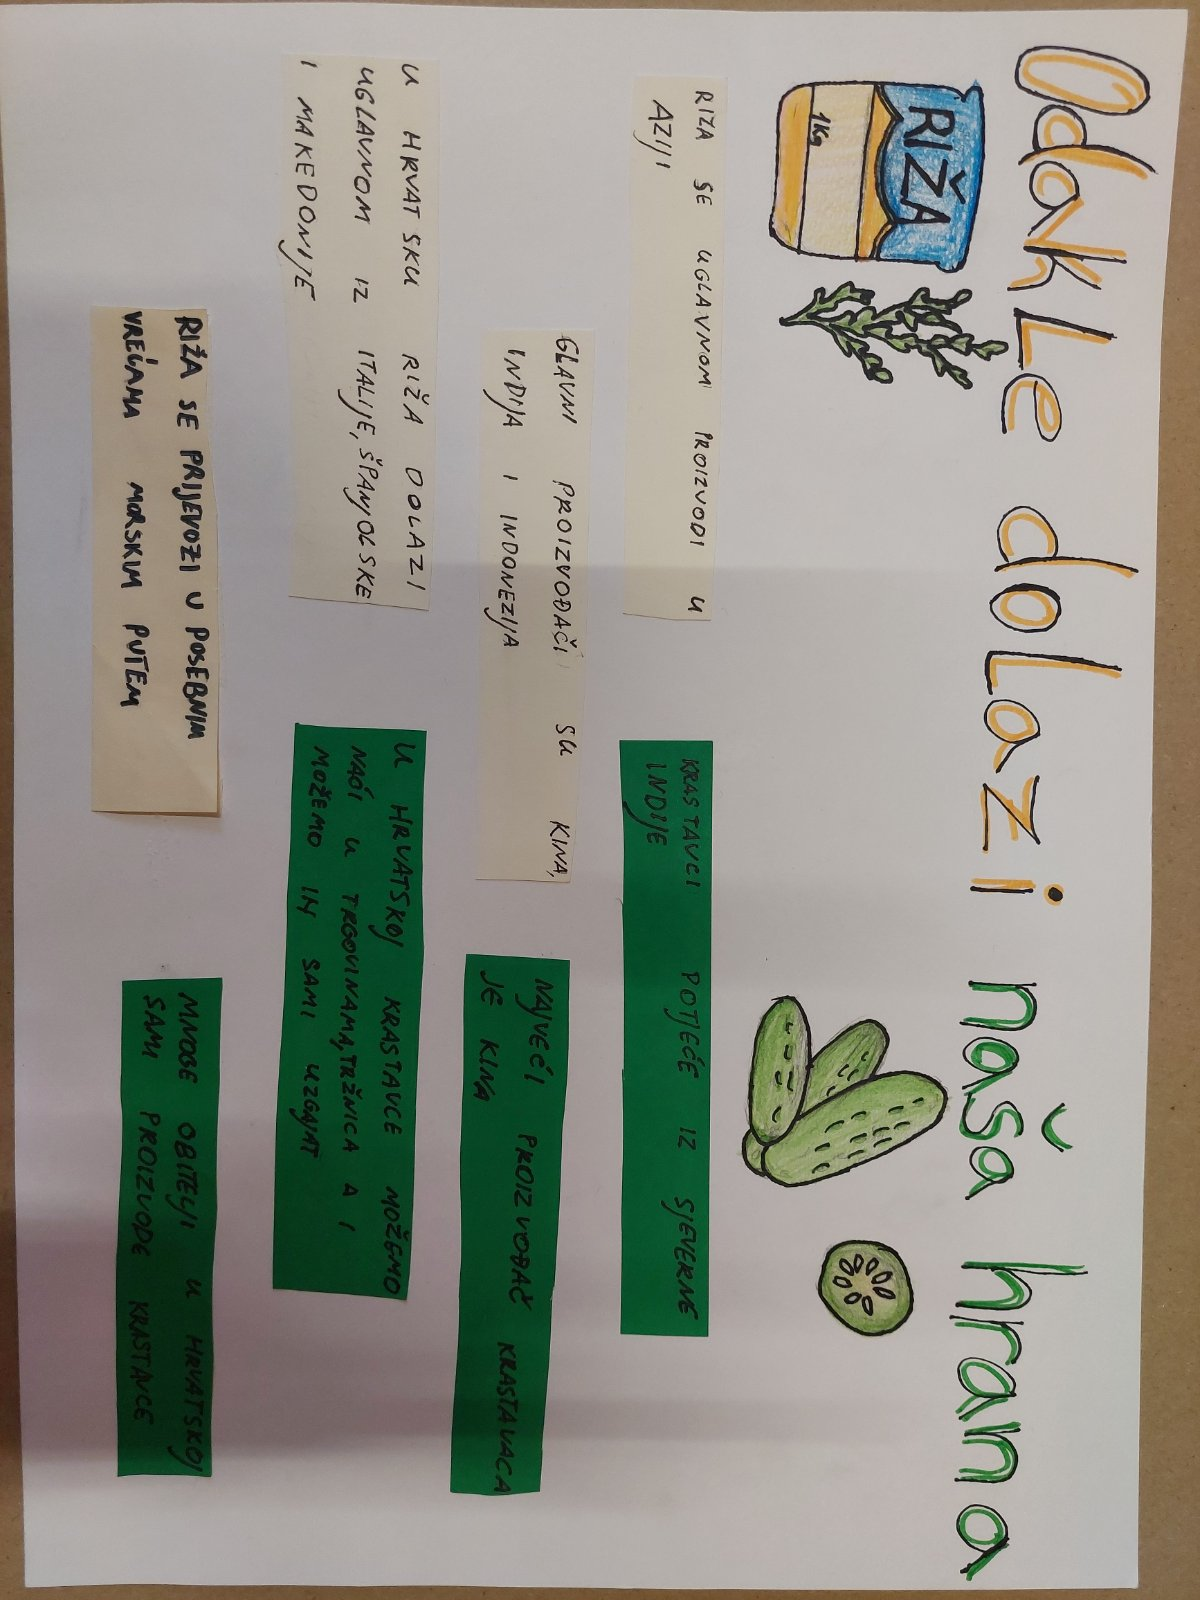 Odakle dolazi naša hrana
RIŽA
1Kg
RIŽA SE UGLAVNOM PROIZVODI U
AZIJI
GLAVNI PROIZVOĐAČI SU KINA,
INDIJA I INDONEZIJA
U HRVATSKU RIŽA DOLAZI
UGLAVNOM IZ ITALIJE, ŠPANJOLSKE
I MAKEDONIJE
RIŽA SE PRIJEVOZI U POSEBNIM
VREĆAMA MORSKIM PUTEM
KRASTAVCI POTJEČE IZ SJEVERNE
INDIJE
NAJVEĆI PROIZVOĐAČ KRASTAVACA
JE KINA
U HRVATSKOJ KRASTAVCE MOŽEMO
NAĆI U TRGOVINAMA, TRŽNICA A I
MOŽEMO IH SAMI UZGAJAT
MNOGE OBITELJI U HRVATSKOJ
SAMI PROIZVODE KRASTAVCE